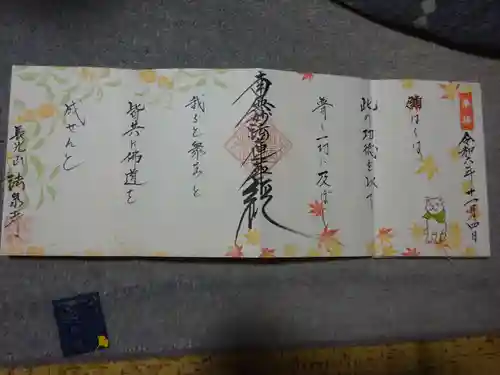 奉拝
令和六年十一月四日
願はくは
此の功徳を以て
普く一切に及ぼし
南無妙法蓮華経
我らと衆生と
皆共に佛道を
成せんと
法泉寺